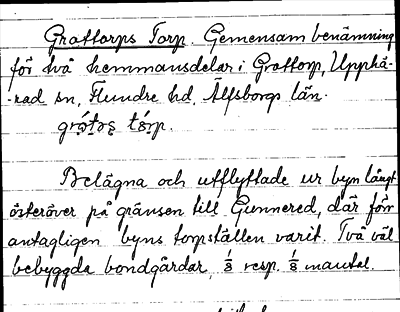 Grattorps Torp. Gemensam benämning
för två hemmansdelar i Grattorp, Upphä-
-rad sn, Flundre hd, Älfsborgs län.
Belägna och utflyttade ur byn långt
österöver på gränsen till Gunnered, där förr
antagligen byns torpställen varit. Två väl
bebyggda bondgårdar, 1/8 resp. 1/8 mantal.